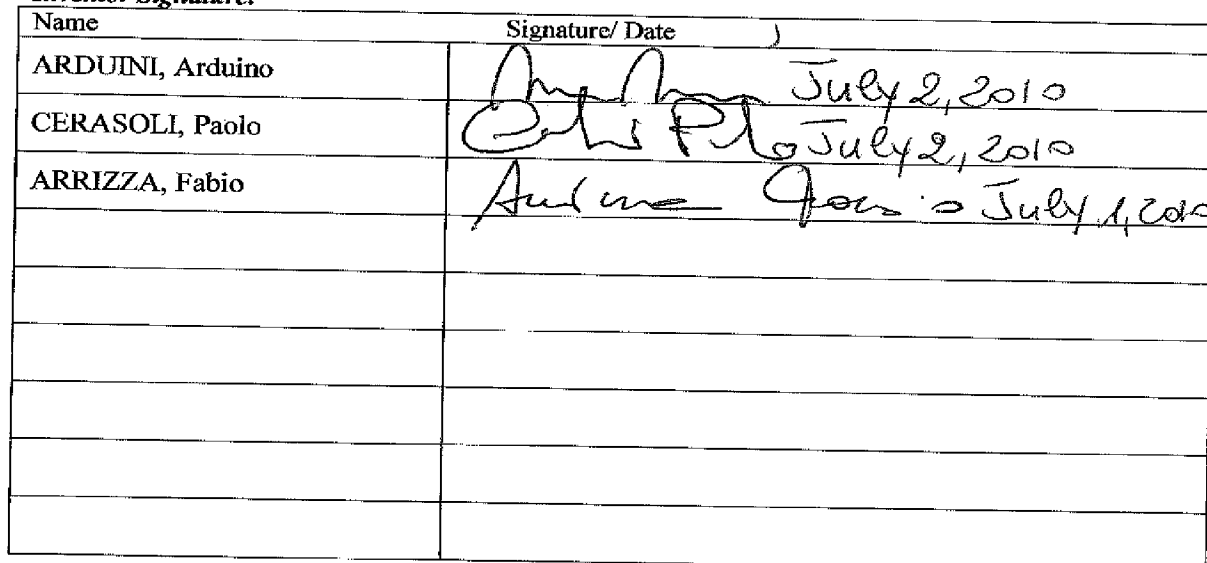 Inventor Signature:
Name Signature/ Date
ARDUINI, Arduino July 2, 2010
CERASOLI, Paolo July 2, 2010
ARRIZZA, Fabio July 1, 2010